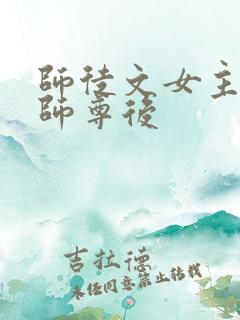 師徒文女主
師尊後
吉拉德
未經同意禁止轉載